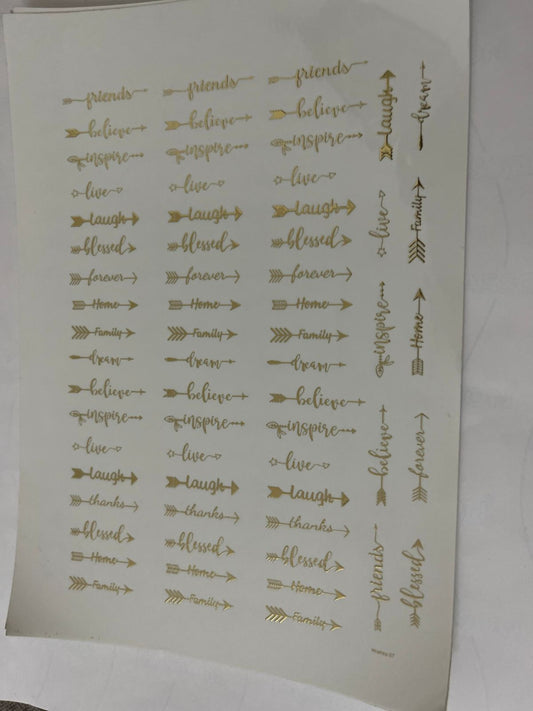 friends friends friends
believe believe believe
inspire inspire inspire
live live live
Laugh Laugh Laugh
blessed blessed blessed
forever forever forever
Home Home Home
Family Family Family
dream dream dream
believe believe believe
inspire inspire inspire
live live live
Laugh Laugh Laugh
thanks thanks thanks
blessed blessed blessed
Home Home Home
Family Family Family
Laugh dream
live Family
inspire Home
believe forever
friends blessed